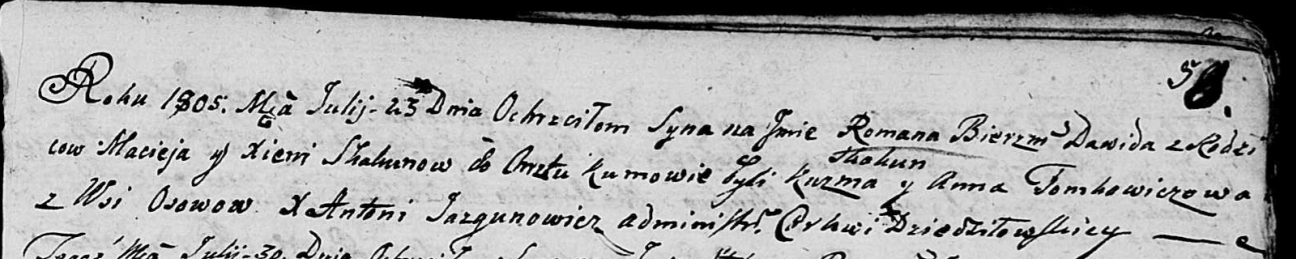 58.
Roku 1805. Mca Julij 23 Dnia Ochrzciłem Syna na Jmie Romana Bierzm. Dawida z Rodzi
cow Macieja y Xieni Skakunow do Chrztu Kumowie byli Kuzma Skakun y Anna Tomkowiczowa
z Wsi Osowow X Antoni Jazgunowicz administr. Cerkwi Dziedziłowskiey
Tegoż Mca Julij 30. Dnia